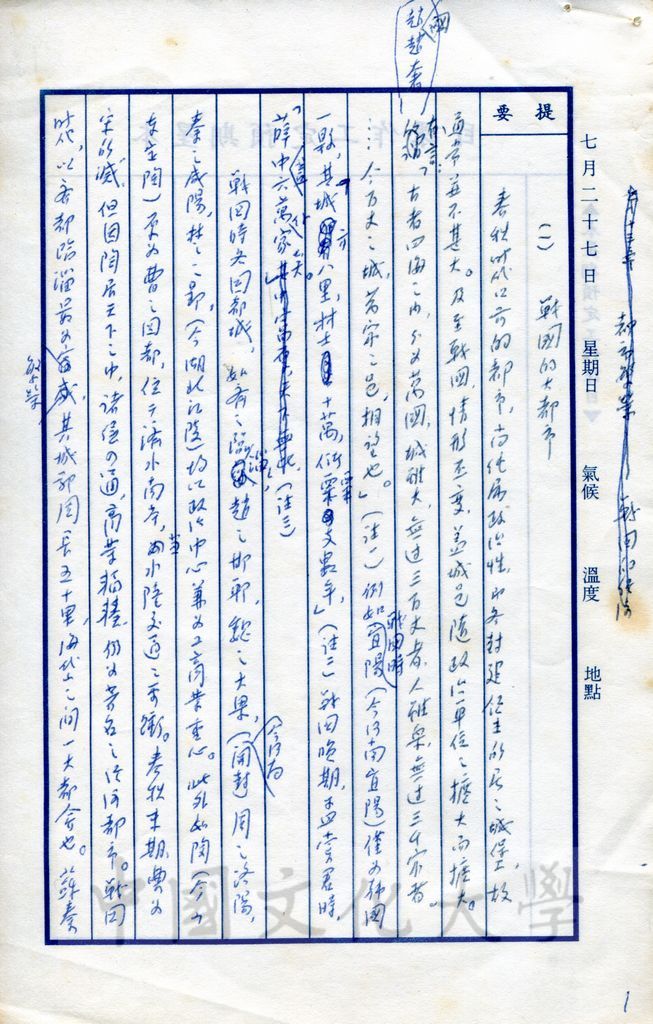 七月二十七日 星期日 氣候 溫度 地點
都市社業 戰國經濟
提要
(一) 戰國的大都市
春秋時代以前的都市,尚係屬政治性,即各封建領主所居之城堡,故
通常並不甚大。及至戰國,情形丕變,蓋城邑隨政治單位之擴大而擴大。
趙趙奢
有言:「古者四海之內,分為萬國,城雖大,無過三百丈者,人雖眾,無過三千家者
…今千丈之城,萬家之邑,相望也。」(註一)例如戰國時宜陽(今河南宜陽)僅為韓國
一縣,其城方八里,材士十萬,粟支數年,」(註二)戰國晚期,孟嘗君時
「薛中六萬家矣。」(註三)
戰國時各國都城,如齊之臨淄,趙之邯鄲,魏之大梁,(今河南開封)周之洛陽,
秦之咸陽,楚之郢(今湖北江陵)均以政治中心兼為工商業重心。此外如陶(今山
東定陶)原為曹之國都,位于濟水南岸,當水陸交通之要衝。春秋末期曹為
宋所滅,但因陶居天下之中,諸侯四通,商業輻輳,仍為著名之經濟都市。戰國
時代,以齊都臨淄最為繁榮,其城郭周長五十里,海岱之間一大都會也。蘇秦
中國文化大學
1